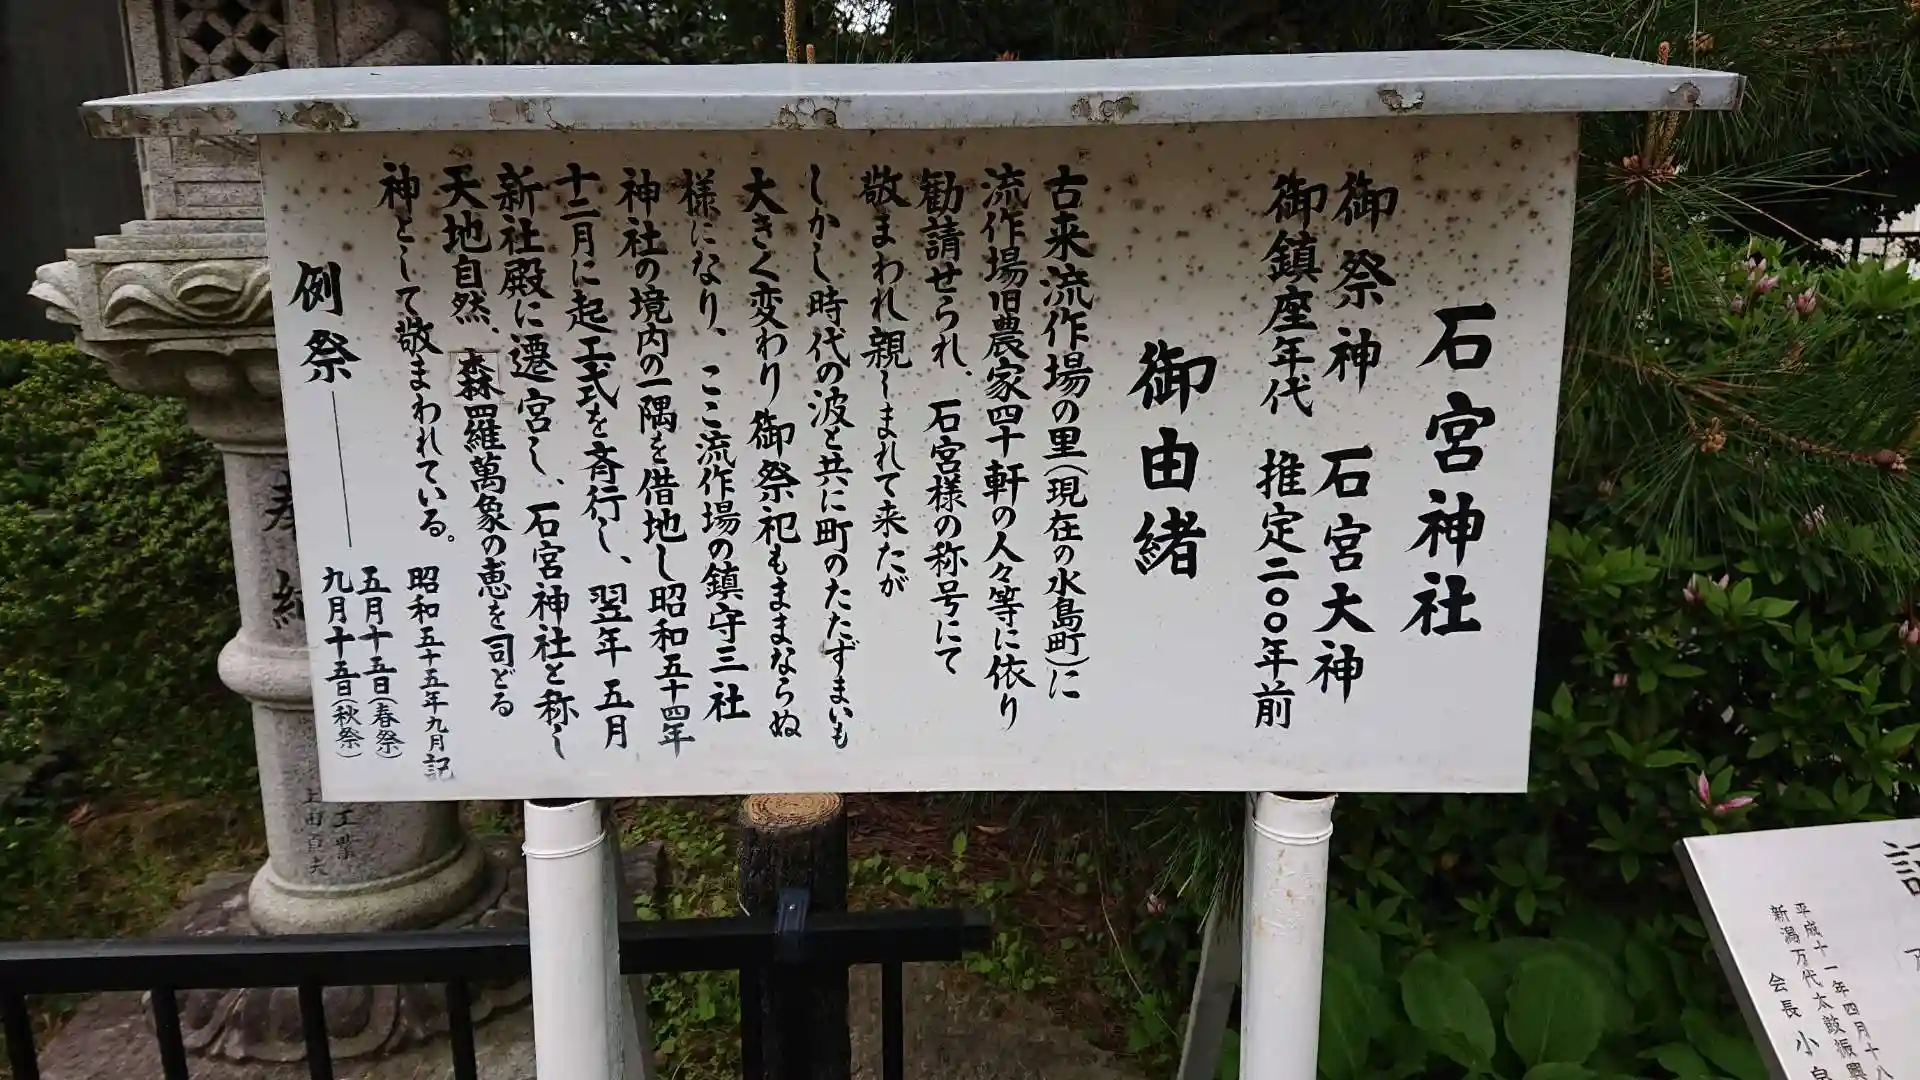 石宮神社
御祭神 石宮大神
御鎮座年代 推定二〇〇年前
御由緒
古来流作場の里(現在の水島町)に
流作場旧農家四十軒の人々等に依り
勧請せられ、石宮様の称号にて
敬まわれ親しまれて来たが
しかし時代の波と共に町のたたずまいも
大きく変わり御祭祀もままならぬ
様になり、ここ流作場の鎮守三社
神社の境内の一隅を借地し昭和五十四年
十二月に起工式を斉行し、翌年五月
新社殿に遷宮し、石宮神社と称し
天地自然、森羅萬象の恵を司どる
神として敬まわれている。
昭和五十五年九月記
例祭
五月十五日(春祭)
九月十五日(秋祭)
奉
工業
上田貞夫
平成十一年四月十八
新潟万代太鼓振興
会長 小